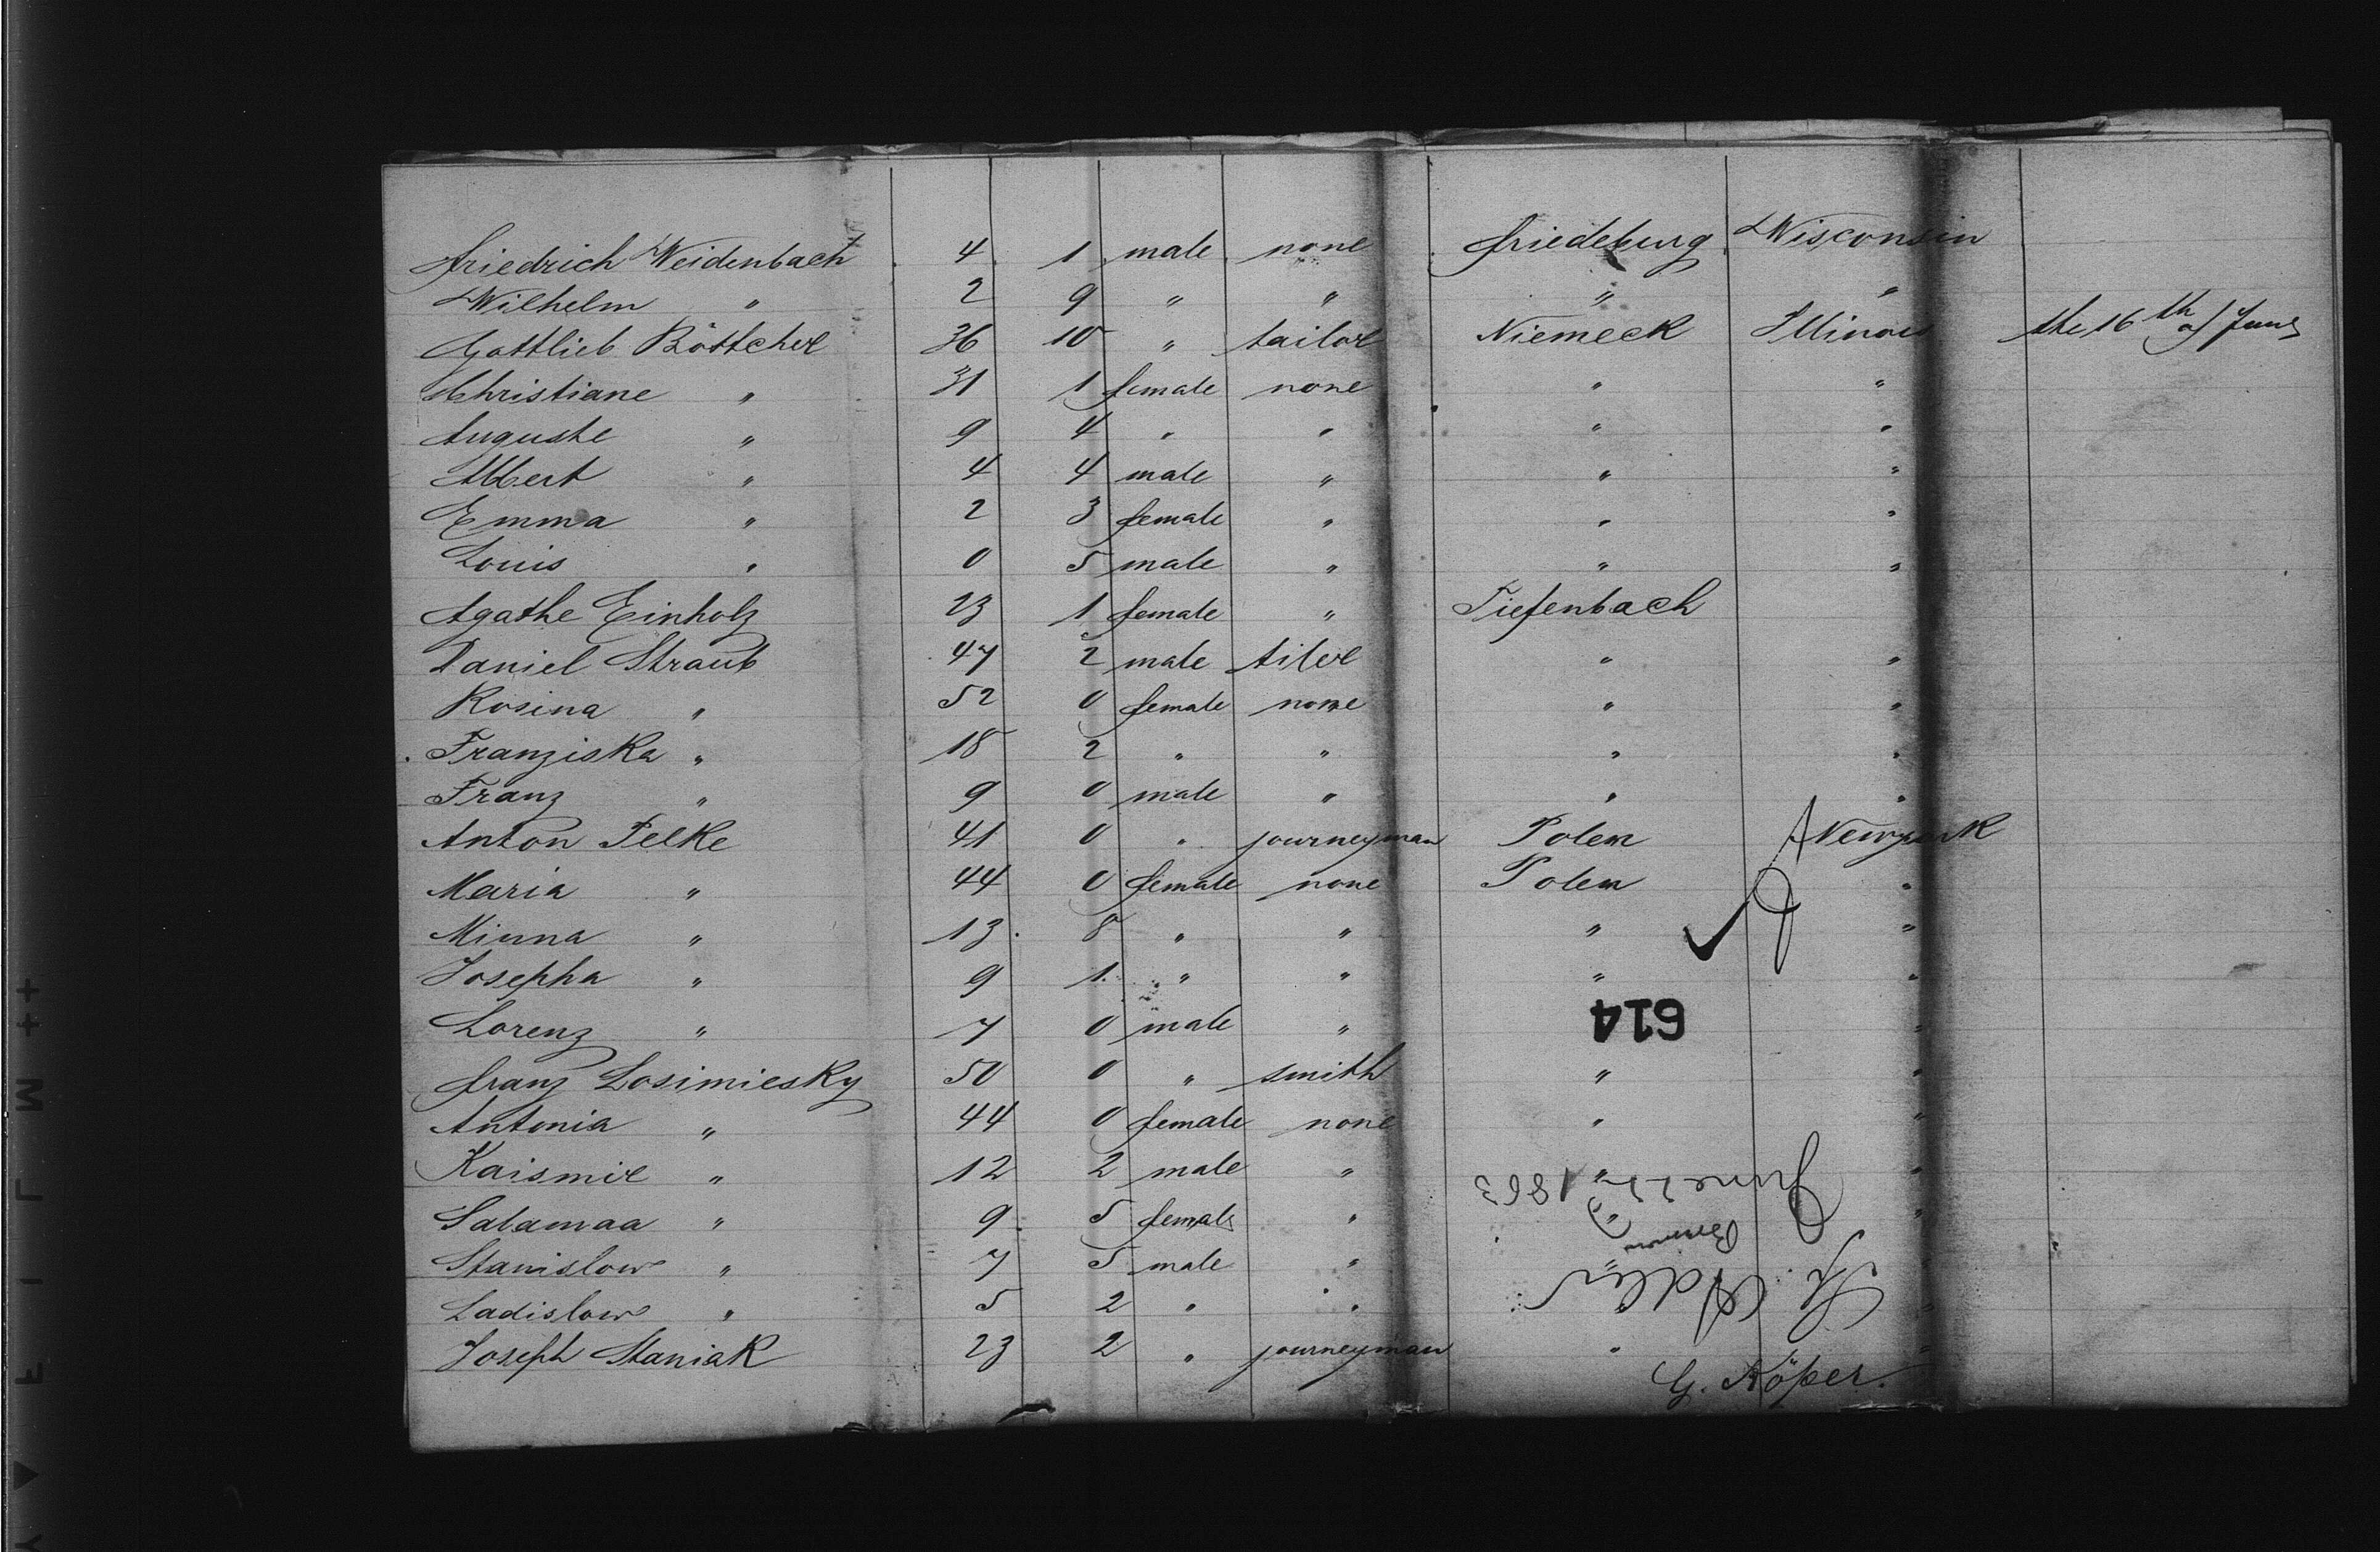 Friedrich Weidenbach 4 1 male none Friedeburg Wisconsin
Wilhelm " 2 9 " " " "
Gottlieb Böttcher 36 10 " tailor Niemeck Illinois the 16th of June
Christiane " 31 1 female none " "
Auguste " 9 4 " " " "
Albert " 4 4 male " " "
Emma " 2 3 female " " "
Louis " 0 5 male " " "
Agathe Einholz 23 1 female " Tiefenbach
Daniel Straub 47 2 male tiler " "
Rosina " 52 0 female none " "
Franziska " 18 2 " " " "
Franz " 9 0 male " " "
Anton Pelke 41 0 " journeyman Polen Newyork
Maria " 44 0 female none Polen "
Minna " 13 8 " " " "
Josepha " 9 1 " " " "
Lorenz " 7 0 male " "
614
Franz Losimiesky 50 0 " smith " "
Antonia " 44 0 female none " "
Kaismir " 12 2 male " " "
Salamaa " 9 5 female " " "
Stanislow " 7 5 male " "
Ladislow " 5 2 " " "
Joseph Staniak 23 2 " journeyman " "
G. Köper.
Adler
Bremen
June 22 1863